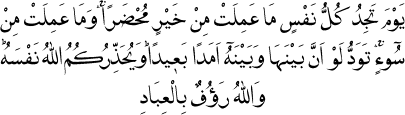 يَوْمَ تَجِدُ كُلُّ نَفْسٍ مَا عَمِلَتْ مِنْ خَيْرٍ مُّحْضَرًا ۛ وَمَا عَمِلَتْ مِنْ
سُوْٓءٍ ۛ تَوَدُّ لَوْ اَنَّ بَيْنَهَا وَبَيْنَهٗٓ اَمَدًا بَعِيْدًا ؕ وَيُحَذِّرُكُمُ اللّٰهُ نَفْسَهٗ ؕ
وَاللّٰهُ رَءُوْفٌۢ بِالْعِبَادِ